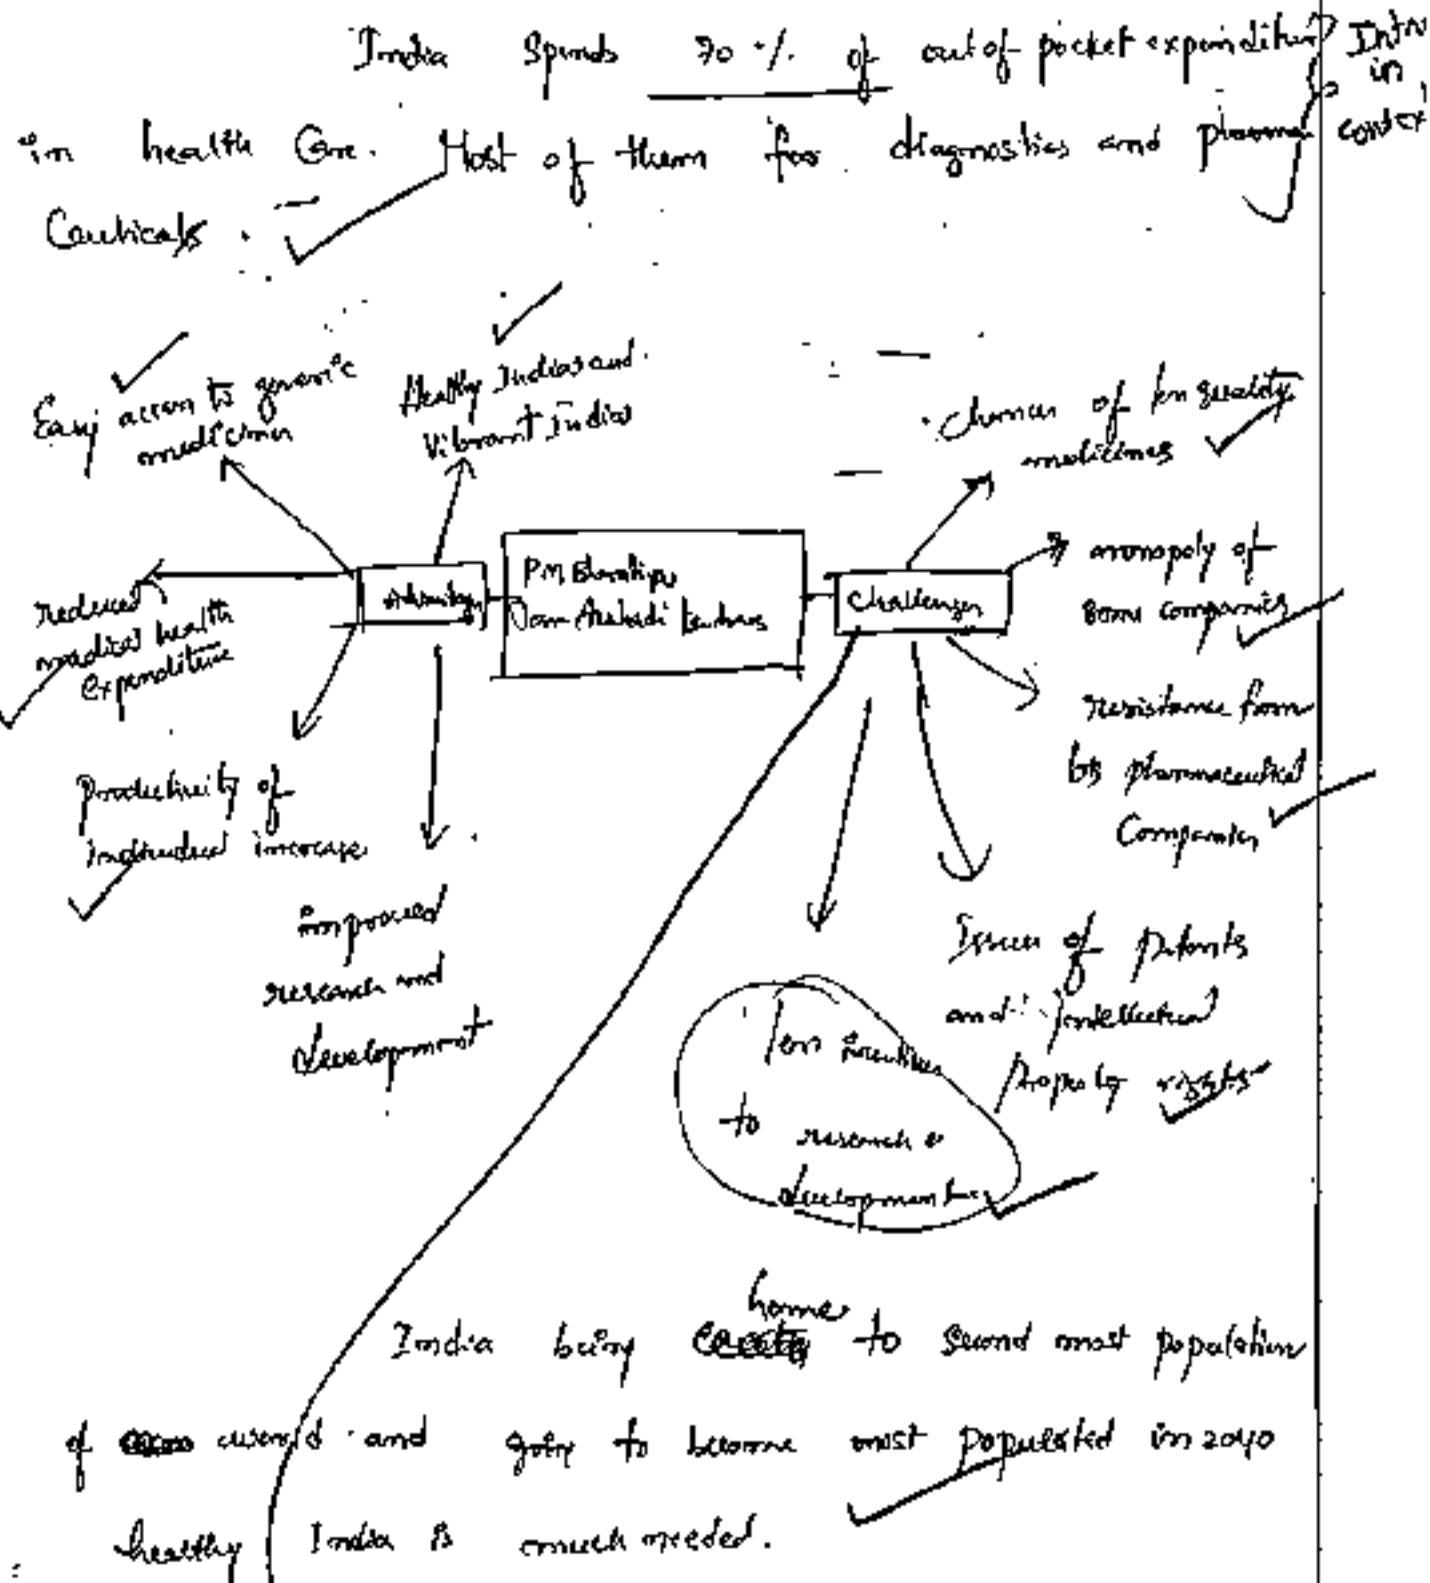 India Spends 70 % of out of pocket expenditure
in health Care. Most of them for diagnostics and pharma
Ceuticals.
Intro
in
contex
Easy access to generic
medicines
Healthy Indias and
Vibrant India
reduced
medical health
expenditure
Productivity of
individual increase
improved
research and
development
Advantages
PM Bhartiya
Jan Aushadi kendras
Challenges
chances of low quality
medicines
monopoly of
some companies
resistance from
big pharmaceutical
Companies
Issues of patents
and intellectual
Property rights
low incentives
to
research &
development
home
India being to Second most population
of world and going to become most populated in 2040
healthy India is much needed.